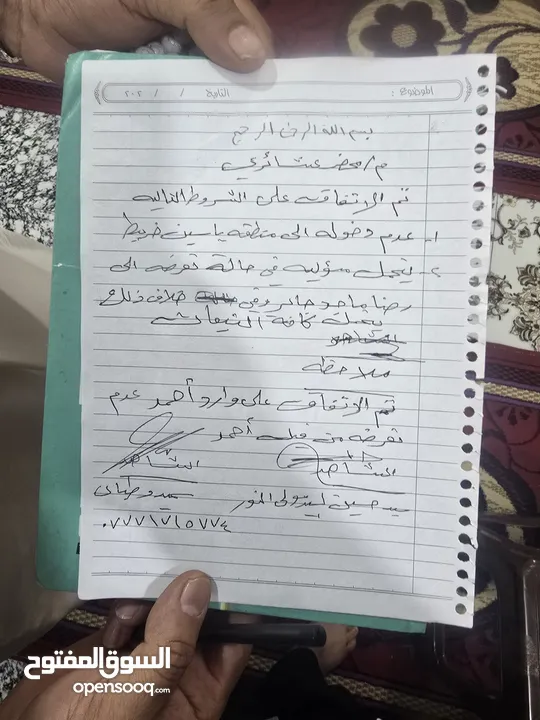 الموضوع : التاريخ / / ٢٠٢
بسم الله الرحمن الرحيم
م/محضر عشائري
تم الاتفاق على الشروط التالية
١- عدم دخوله الى منطقه ياسين خريبط
٢- يتحمل مسؤليه في حالة تعرضه الى
رضا ماجد جابر وفي خلاف ذلك
يتحمل كافة التبعات
ملاحظه
تم الاتفاق على وارد أحمد عدم
تعرضه من قبل أحمد
الشاهد الشاهد
سيد حسين
٠٧٧٧١٧١٥٧٧٤
السوق المفتوح
opensooq.com